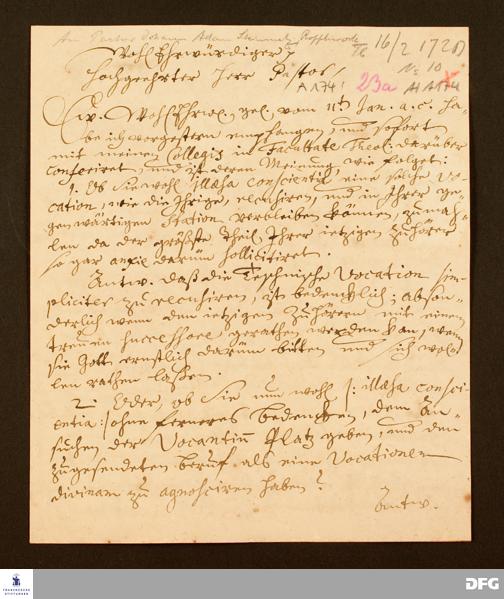 An Pastor Johann Adam Steinmetz
16/2 1720
No 10
WohlEhrwürdiger
Hochgeehrter Herr Pastor,
A 174: 23a A 174
Ew. WohlEhrw. gel. vom 11t Jan. a. c. ha-
be ich vorgestern empfangen, und sofort
mit meinen Collegis in Facultate Theol. darüber
conferiret, und ist deren Meinung wie folget:
1. Ob Sie wohl illæsa conscientia eine solche Vo-
cation, wie die Ihrige, recusiren, und in Ihrer ge-
genwärtigen Station verbleiben können, zumah-
len da der größte Theil Ihrer ietzigen Zuhörer
so gar anxie darum sollicitiret.
Antw. daß die Teschnische Vocation sim-
pliciter zu recusiren, ist bedencklich; abson-
derlich wenn den ietzigen Zuhörern mit einem
treuen successore gerathen werden kan, wenn
sie Gott ernstlich darum bitten und sich wol
len rathen laßen.
2. Oder, ob Sie nun wohl /: illæsa consci-
entia :/ ohne ferneres bedencken, dem An-
suchen der Vocantium Platz geben, und den
zugesendeten beruf als eine Vocationem
divinam zu agnosciren haben?
Antw.
FRANCKESCHE STIFTUNGEN
DFG